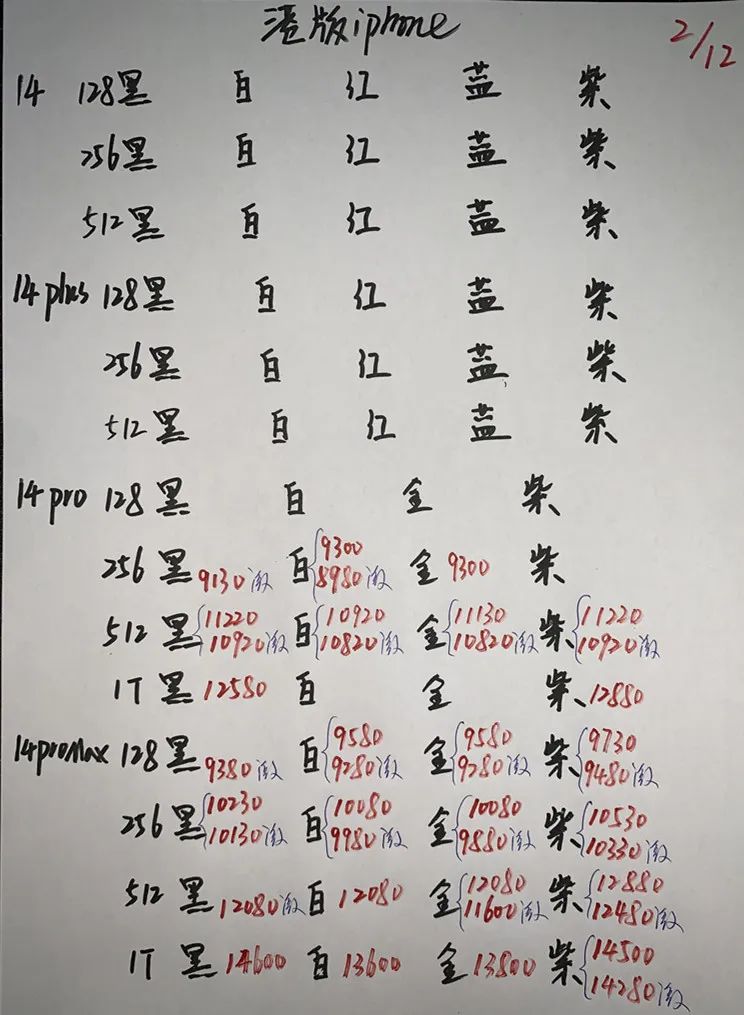 港版iphone 2/12
14 128黑 白 红 蓝 紫
256黑 白 红 蓝 紫
512黑 白 红 蓝 紫
14plus 128黑 白 红 蓝 紫
256黑 白 红 蓝 紫
512黑 白 红 蓝 紫
14pro 128黑 白 金 紫
256黑 9130激 白 9300 8980激 金 9300 紫
512黑 11220 10920激 白 10920 10820激 金 11130 10820激 紫 11220 10920激
1T黑 12580 白 金 紫 12880
14proMax 128黑 9380激 白 9580 9280激 金 9580 9280激 紫 9730 9480激
256黑 10230 10130激 白 10080 9980激 金 10080 9880激 紫 10530 10330激
512黑 12080激 白 12080 金 12080 11600激 紫 12880 12480激
1T黑 14600 白 13600 金 13800 紫 14500 14280激